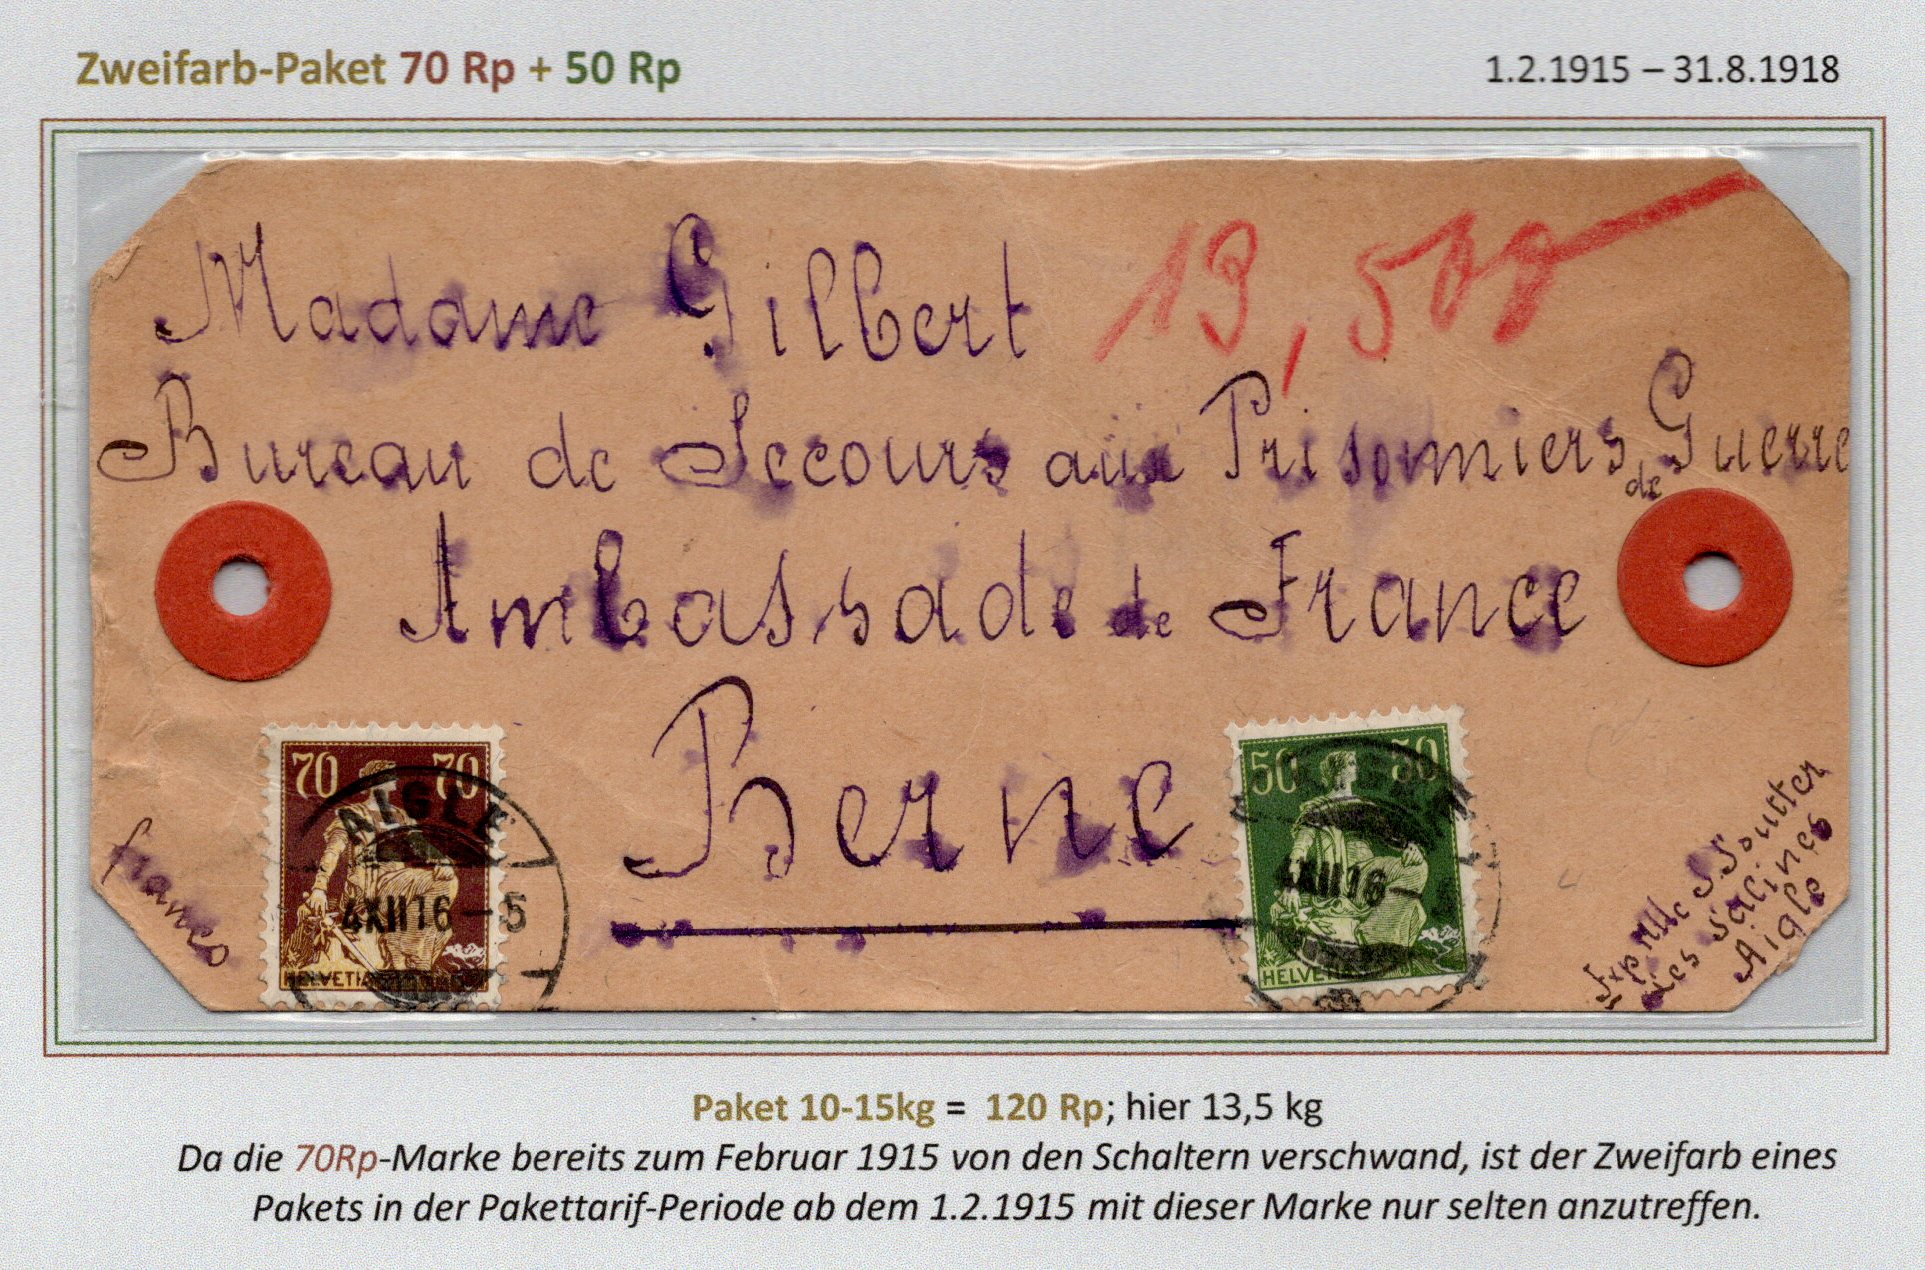 Zweifarb-Paket 70 Rp + 50 Rp
1.2.1915 – 31.8.1918
Madame Gilbert
13,500
Bureau de Secours aux Prisonniers de Guerre
Ambassade de France
Berne
franco
70 70
HELVETIA
AIGLE
4XII16-5
50 50
HELVETIA
4XII16-
Exp Mlle S. Soutter
Les Salines
Aigle
Paket 10-15kg = 120 Rp; hier 13,5 kg
Da die 70Rp-Marke bereits zum Februar 1915 von den Schaltern verschwand, ist der Zweifarb eines
Pakets in der Pakettarif-Periode ab dem 1.2.1915 mit dieser Marke nur selten anzutreffen.